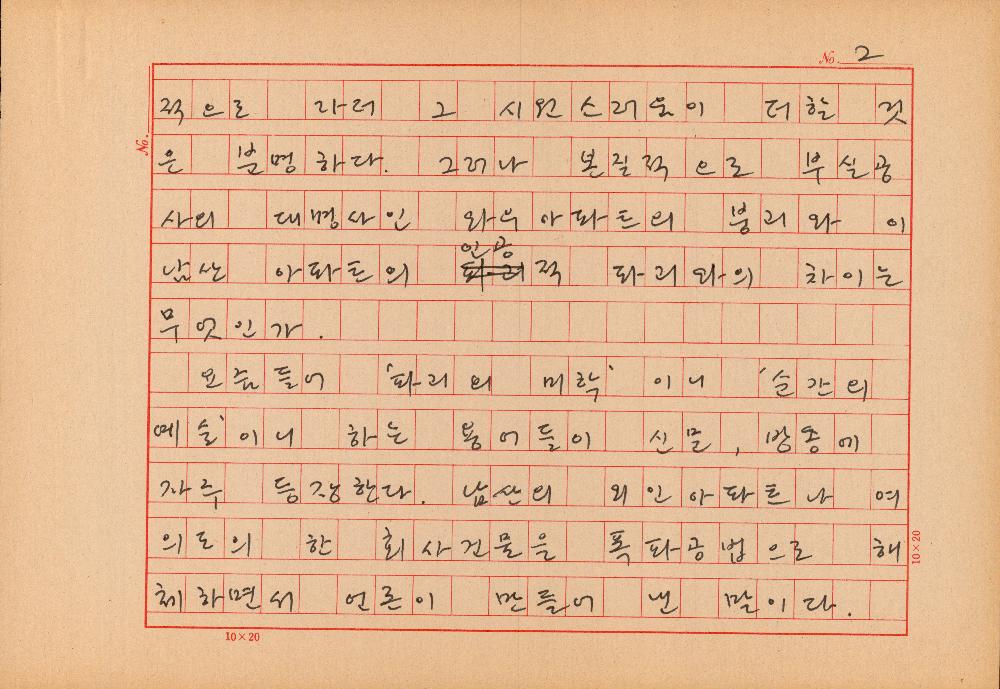 No. 2
적으로 라더 그 시원스러움이 더할 것
은 분명하다. 그러나 본질적으로 부실공
사의 대명사인 와우아파트의 붕괴와 이
인공
남산 아파트의 파괴적 파괴와의 차이는
무엇인가.
요즘들어 '파괴의 미학' 이니 '순간의
예술' 이니 하는 용어들이 신문, 방송에
자주 등장한다. 남산의 외인아파트나 여
의도의 한 회사건물을 폭파공법으로 해
체하면서 언론이 만들어 낸 말이다.
No.
10×20
10×20